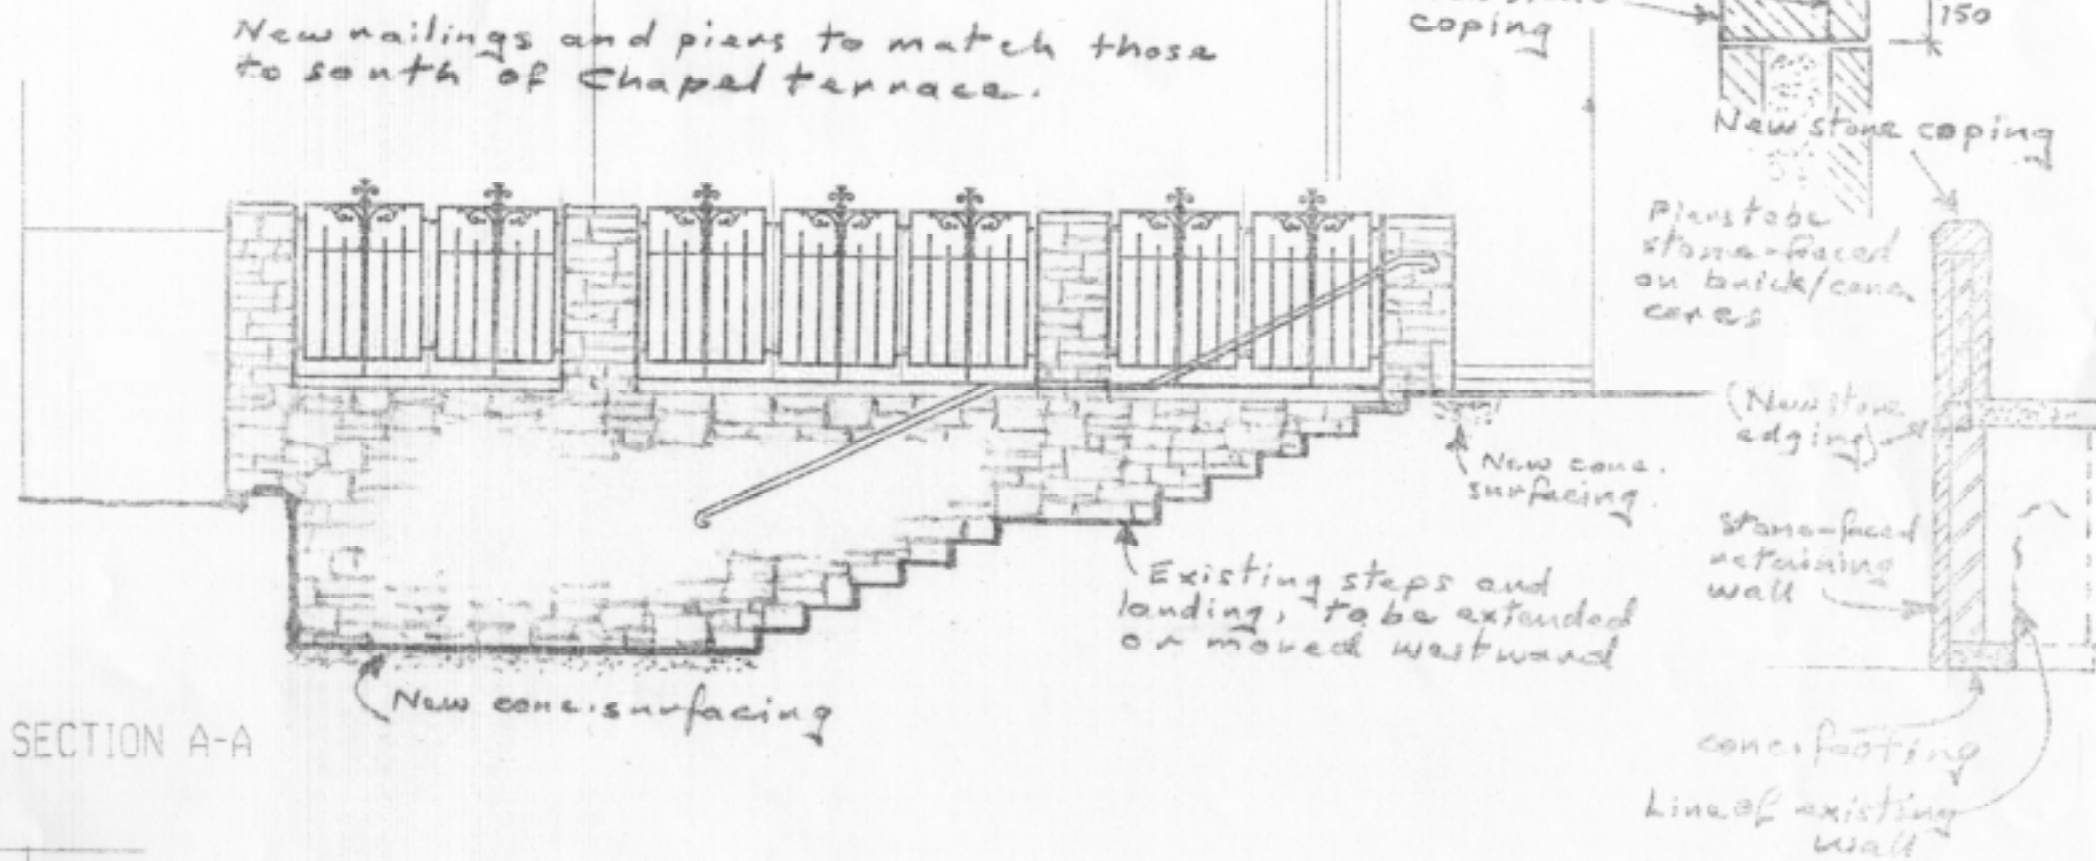 New railings and piers to match those
to south of Chapel terrace.
coping
150
New stone coping
Piers to be
stone-faced
on brick/conc.
cores
(New stone
edging)
New conc.
surfacing
Stone-faced
retaining
wall
Existing steps and
landing, to be extended
or moved westward
New conc. surfacing
SECTION A-A
conc. footing
Line of existing
wall